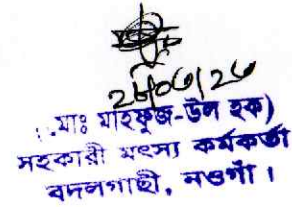 মোঃ মাহফুজ-উল হক)
সহকারী মৎস্য কর্মকর্তা
বদলগাছী, নওগাঁ।